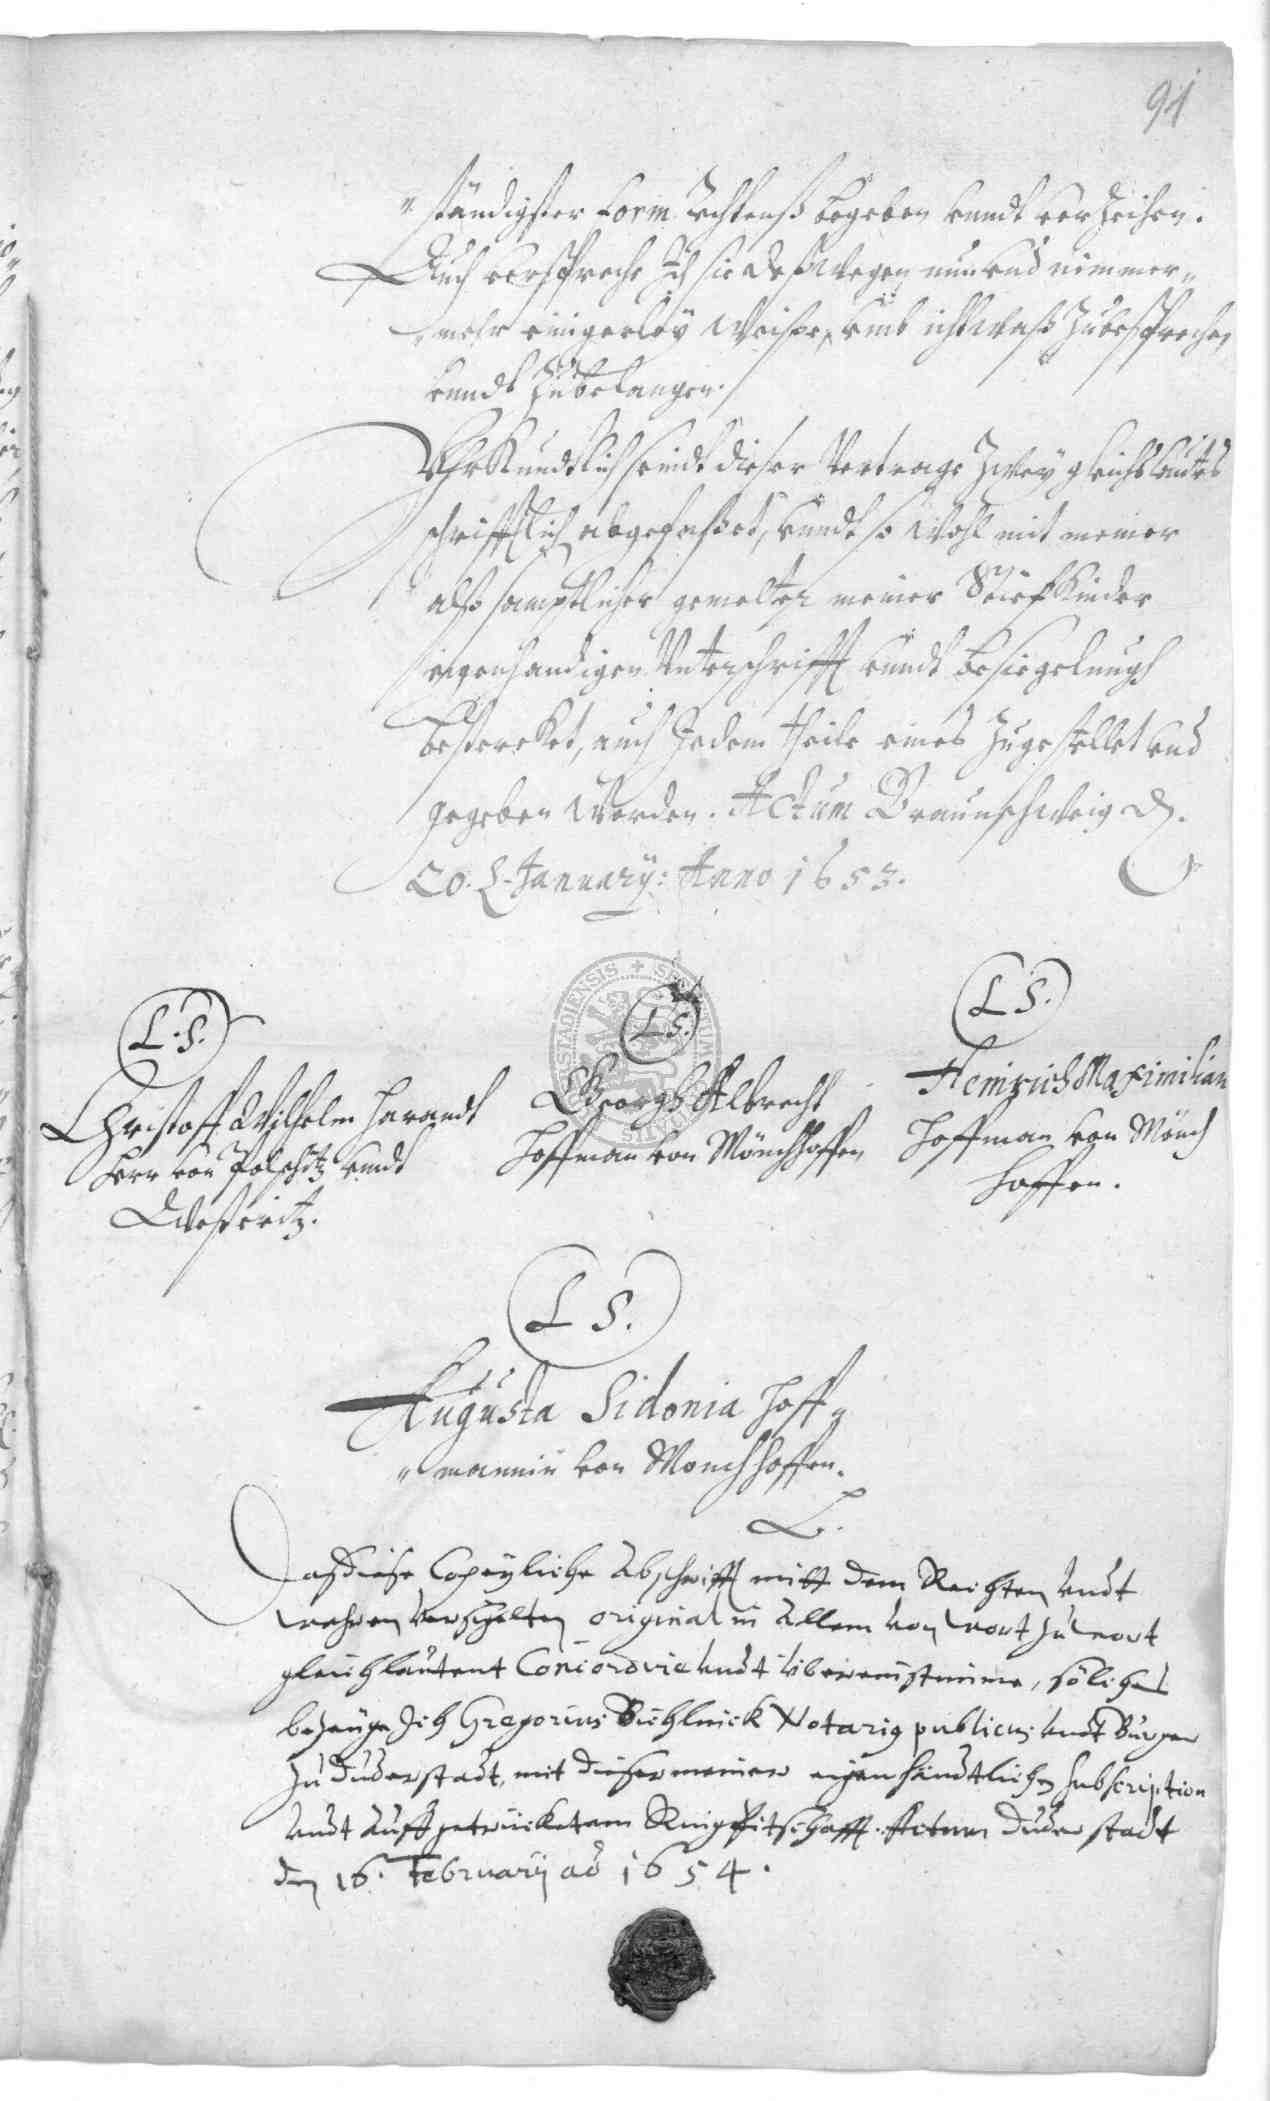 91
"ständigster Form Rechtenß begeben undt verzeihen.
Auch verspreche Ich sie deßwegen nun und nimmer,,
,,mehr einigerley Weise, umb ichtwaß Zubesprechen
undt Zubelangen.
Uhrkundtlich seindt dieser Vertrage Zwey gleichs lauts
schrifftlich abgefaßet, undt so Wohl mit meiner
alß samptlicher gemelter meiner Stiefkinder
eigenhandigen Unterschrifft undt besiegelungh
bestereket, auch Jedem theile eines Zugestellet und
gegeben Worden. Actum Braunschweig d.
20. January: Anno 1653.
L.S.
Christoff Wilhelm Harandt
Herr von Polschitz undt
Westeritz.
LS.
Georgh Albrecht
Hoffman von Mönchhoffen
LS.
Heinrich Maximilian
Hoffman von Mönch
hoffen.
LS.
Augusta Sidonia Hoff,,
,,mannin von Monchhoffen.
Daß diese Copeyliche Abschrifft mitt dem Rechten undt
wahren original in Allem von wort zu wort
gleichlautent Concordire undt übereinstimme, sölches
bezeuge Ich Gregorius Notarius publicus undt Burger
zu Duderstadt, mit dieser meiner eigenhändtlichen subscription
undt Auffgetrücketem Ringpitschafft. Actum Duderstadt
den 16. February ao 1654.